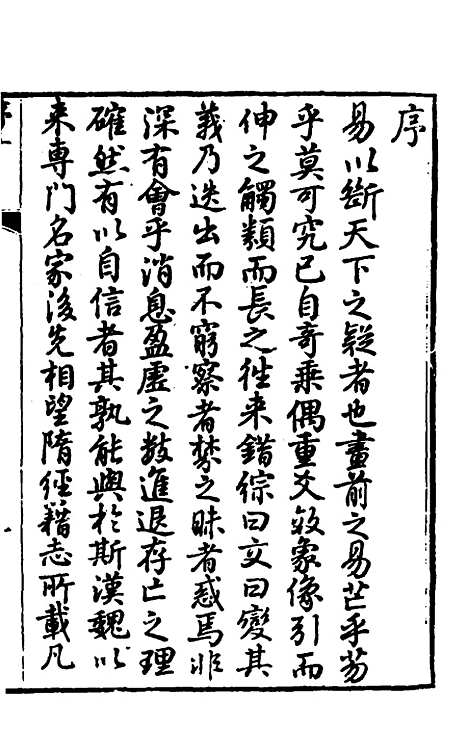 序
易以斷天下之疑者也畫前之易芒乎芴
乎莫可究已自奇乘偶重爻效象像引而
伸之觸類而長之往来錯綜曰文曰變其
義乃迭出而不窮察者棼之昧者惑焉非
深有會乎消息盈虛之数進退存亡之理
確然有以自信者其孰能與於斯漢魏以
来專門名家後先相望隋經籍志所載凡